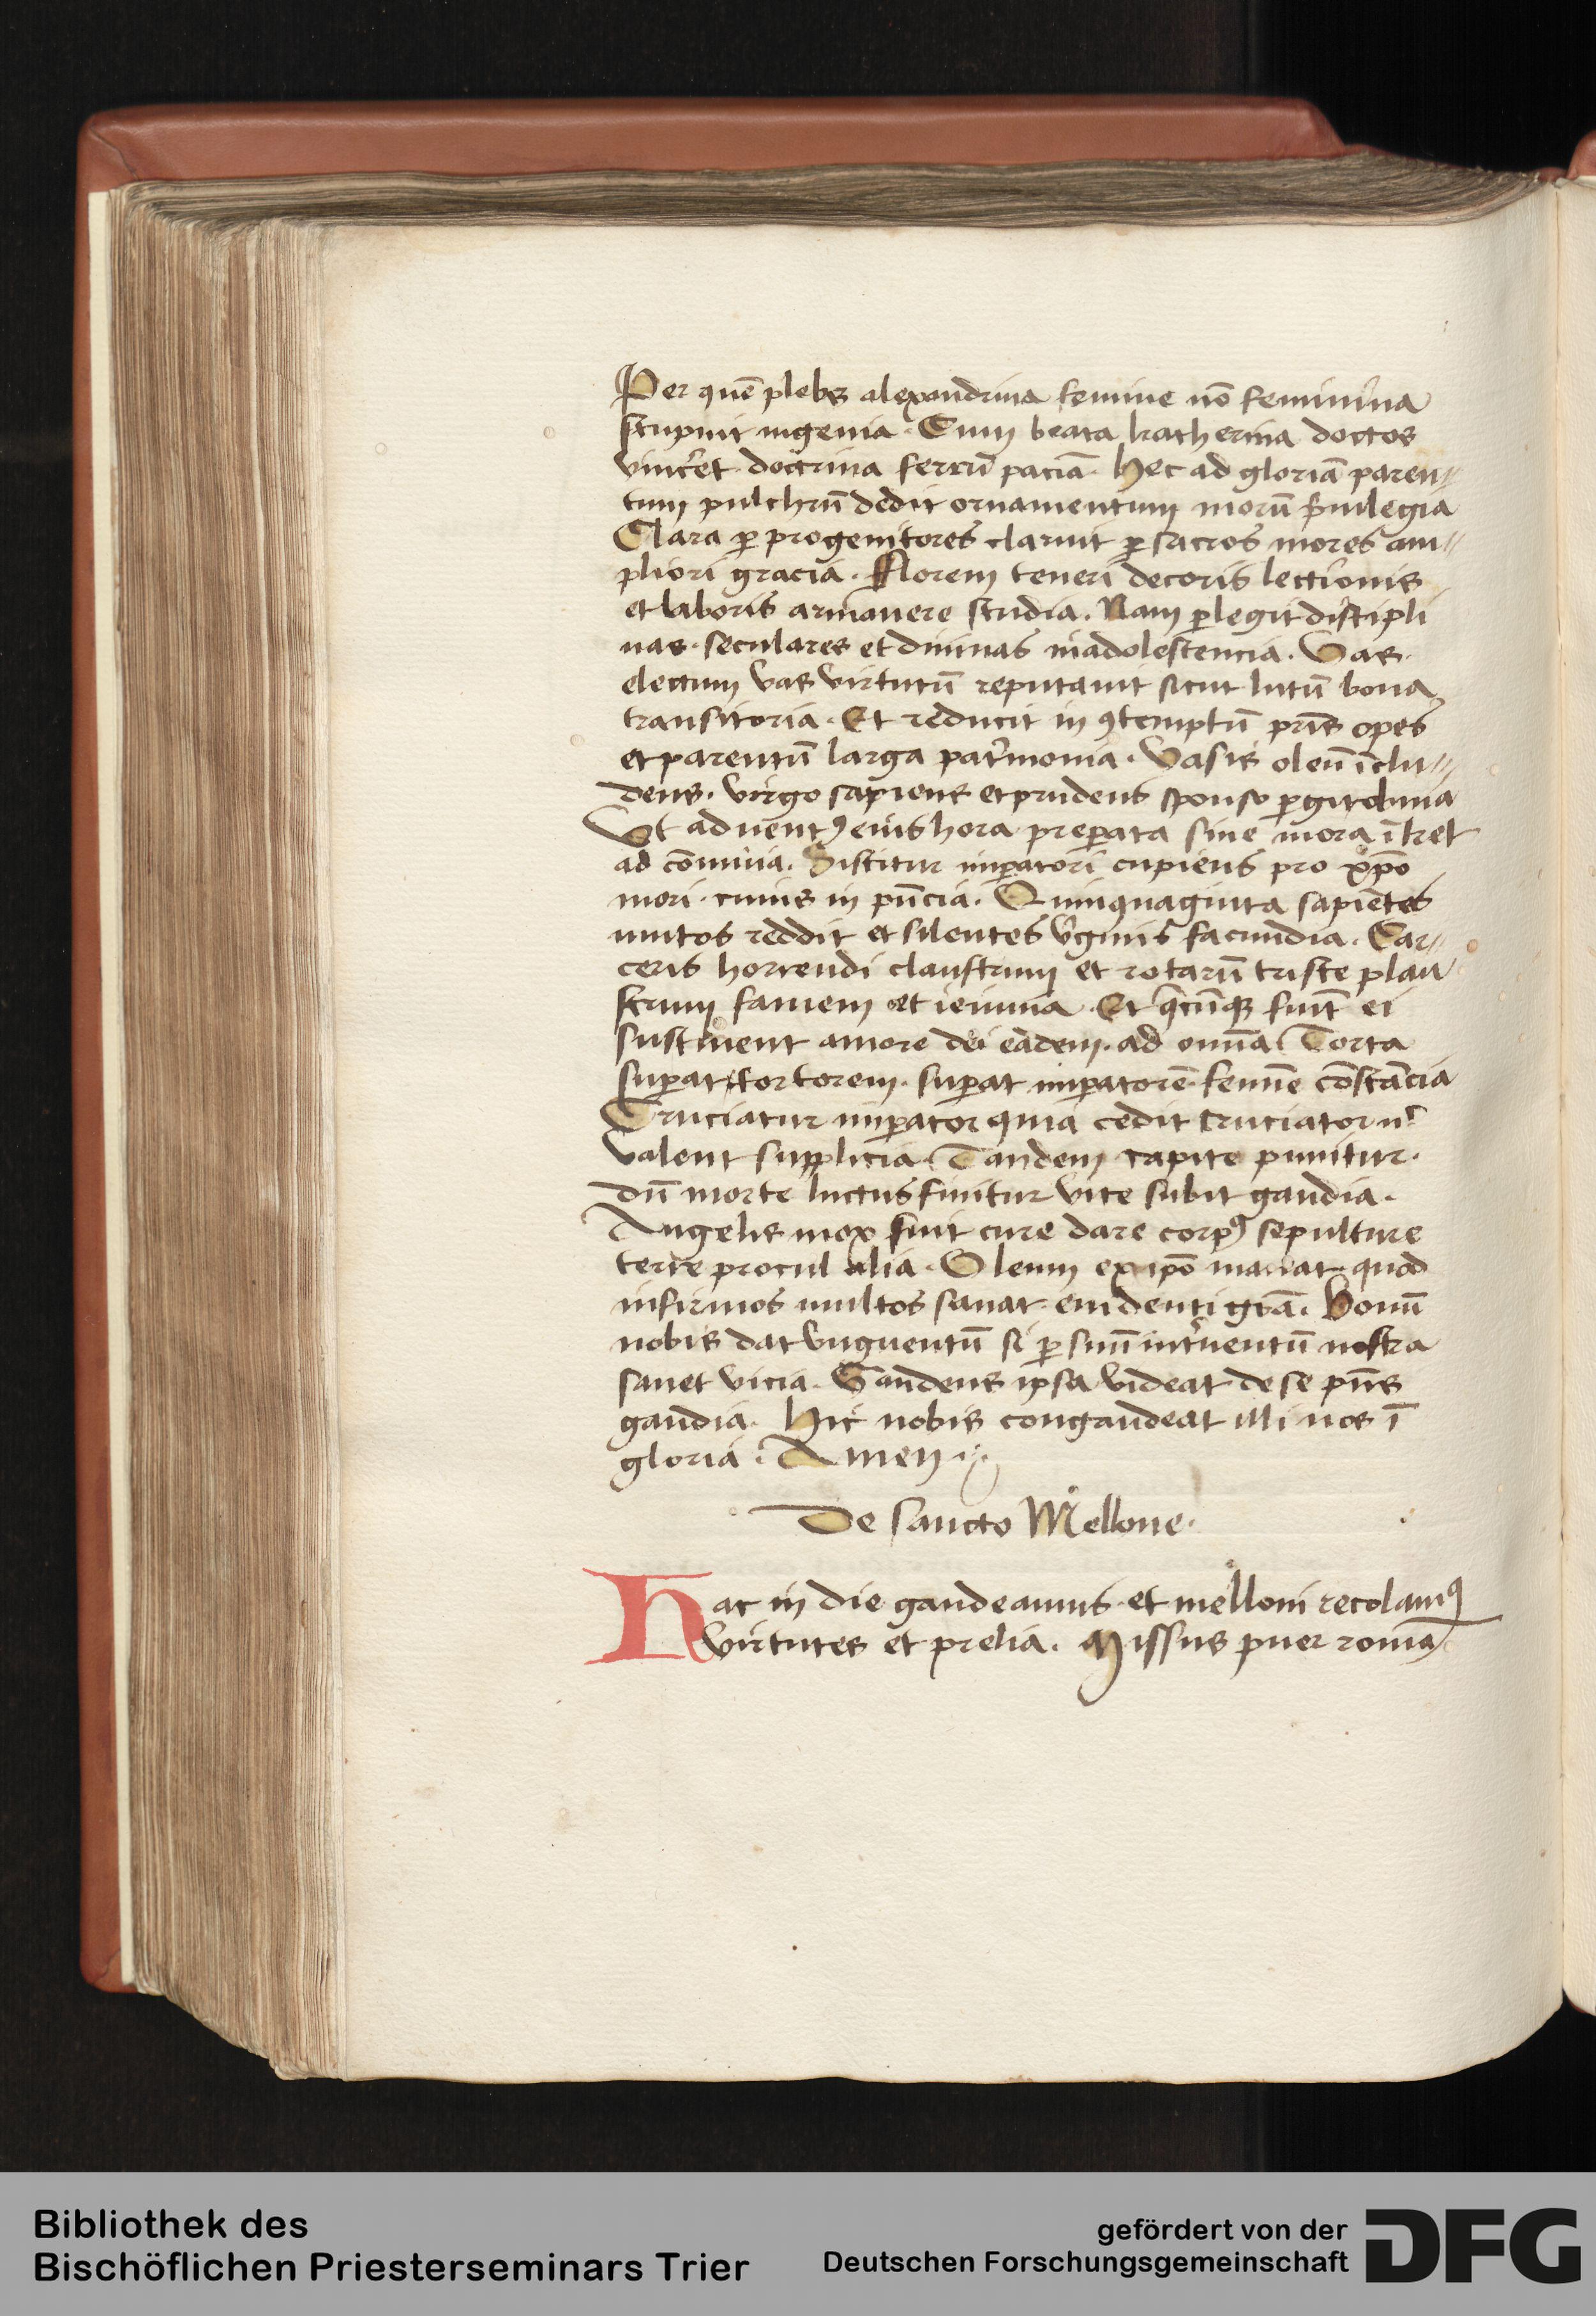 Per quē plebs alexandrina femine nō feminina
stupuit ingenia. Cum beata katherina doctos
vinceret doctrina ferrū paciā. Hec ad gloriā paren⸗
tum pulchrū dedit ornamentum morū p̄uilegia
Clara ꝑ progenitores claruit ꝑ sacros mores am⸗
pliori gracia. Florem teneri decoris lectionis
et laboris attriuere studia. Nam ꝑlegit discipli
nas. seculares et diuinas in adolescencia. Vas
electum vas virtutū reputauit sicut lutū bona
transitoria. Et reducit in ꝯtemptū pr̄is opes
et parentū larga pat̓monia. Vasis oleū īclu⸗
dens. virgo sapiens et prudens sponso ꝑgit obuia
Vt aduentꝰ eius hora preꝑata sine mora ītret
ad cōuiuia. Sistitur imꝑatori cupiens pro xp̄o
mori. cuius in pn̄cia. Quinquaginta sapiētes
mutos reddit et silentes v̓ginis facundia. Car⸗
ceris horrendi claustrum et rotarū triste plau
strum famem et ieiunia. Et q̄cūqꝫ fiūt ei
sustinent amore dei eadem. ad omīa. Torta
suꝑat tortorem. suꝑat imꝑatorē. femīe cōstācia
Cruciatur imꝑator quia cedit cruciator nͨ
valent supplicia. Tandem capite punitur.
dū morte luctus finitur vite subit gaudia.
Angelis mox fuit cure dare corpꝰ sepulture
terre procul alia. Oleum ex ip̄o manat quod
infirmos multos sanat euidenti gr̄a. Bonū
nobis dat vnguentū si ꝑ suū int̓uentū nostra
sanet vicia. Gaudens ipsa videat de se pn̄s
gaudia. Hic nobis congaudeat illi nos ī
gloria. Amen.
De sancto Mellone.
Hac in die gaudeamus et melloni recolamꝰ
virtutes et prelia. Missus puer romā
Bibliothek des
Bischöflichen Priesterseminars Trier
gefördert von der
Deutschen Forschungsgemeinschaft
DFG